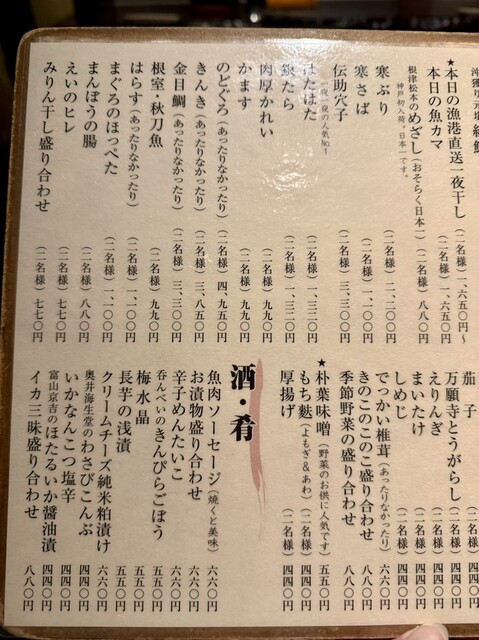 ★本日の漁港直送一夜干し (二名様) 一、六五〇円〜
本日の魚カマ (二名様) 一、六五〇円
根津松本のめざし(おそらく日本一) (二名様) 八八〇円
神戸初入荷・日本一です。
寒ぶり (二名様) 二、二〇〇円
寒さば (二名様) 一、一〇〇円
伝助穴子 (二名様) 三、三〇〇円
一夜一夜の人気No.1
はたはた (二名様) 一、三二〇円
銀だら (二名様) 一、三二〇円
肉厚かれい (二名様) 九九〇円
かます (二名様) 九九〇円
のどぐろ(あったりなかったり) (二名様) 四、九五〇円
きんき(あったりなかったり) (二名様) 三、八五〇円
金目鯛(あったりなかったり) (二名様) 三、三〇〇円
根室・秋刀魚 (二名様) 九九〇円
はらす(あったりなかったり) (二名様) 一、一〇〇円
まぐろのほっぺた (二名様) 一、一〇〇円
まんぼうの腸 (二名様) 八八〇円
えいのヒレ (二名様) 七七〇円
みりん干し盛り合わせ (二名様) 七七〇円
茄子 (二名様)
万願寺とうがらし (二名様) 四四〇円
えりんぎ (二名様) 四四〇円
まいたけ (二名様) 四四〇円
しめじ (二名様) 四四〇円
でっかい椎茸(あったりなかったり) 六六〇円
きのこのこのこ盛り合わせ 八八〇円
季節野菜の盛り合わせ 八八〇円
★朴葉味噌(野菜のお供に人気です) 五五〇円
もち麩(よもぎ&あわ) (二名様) 四四〇円
厚揚げ (二名様) 四四〇円
酒・肴
魚肉ソーセージ(焼くと美味) 六六〇円
お漬物盛り合せ 六六〇円
辛子めんたいこ 六六〇円
呑んべいのきんぴらごぼう 五五〇円
梅水晶 五五〇円
長芋の浅漬 五五〇円
クリームチーズ純米粕漬け 六六〇円
奥井海生堂のわさびこんぶ 四四〇円
いかなんこつ塩辛 四四〇円
富山京吉のほたるいか醤油漬 四四〇円
イカ三昧盛り合わせ 八八〇円